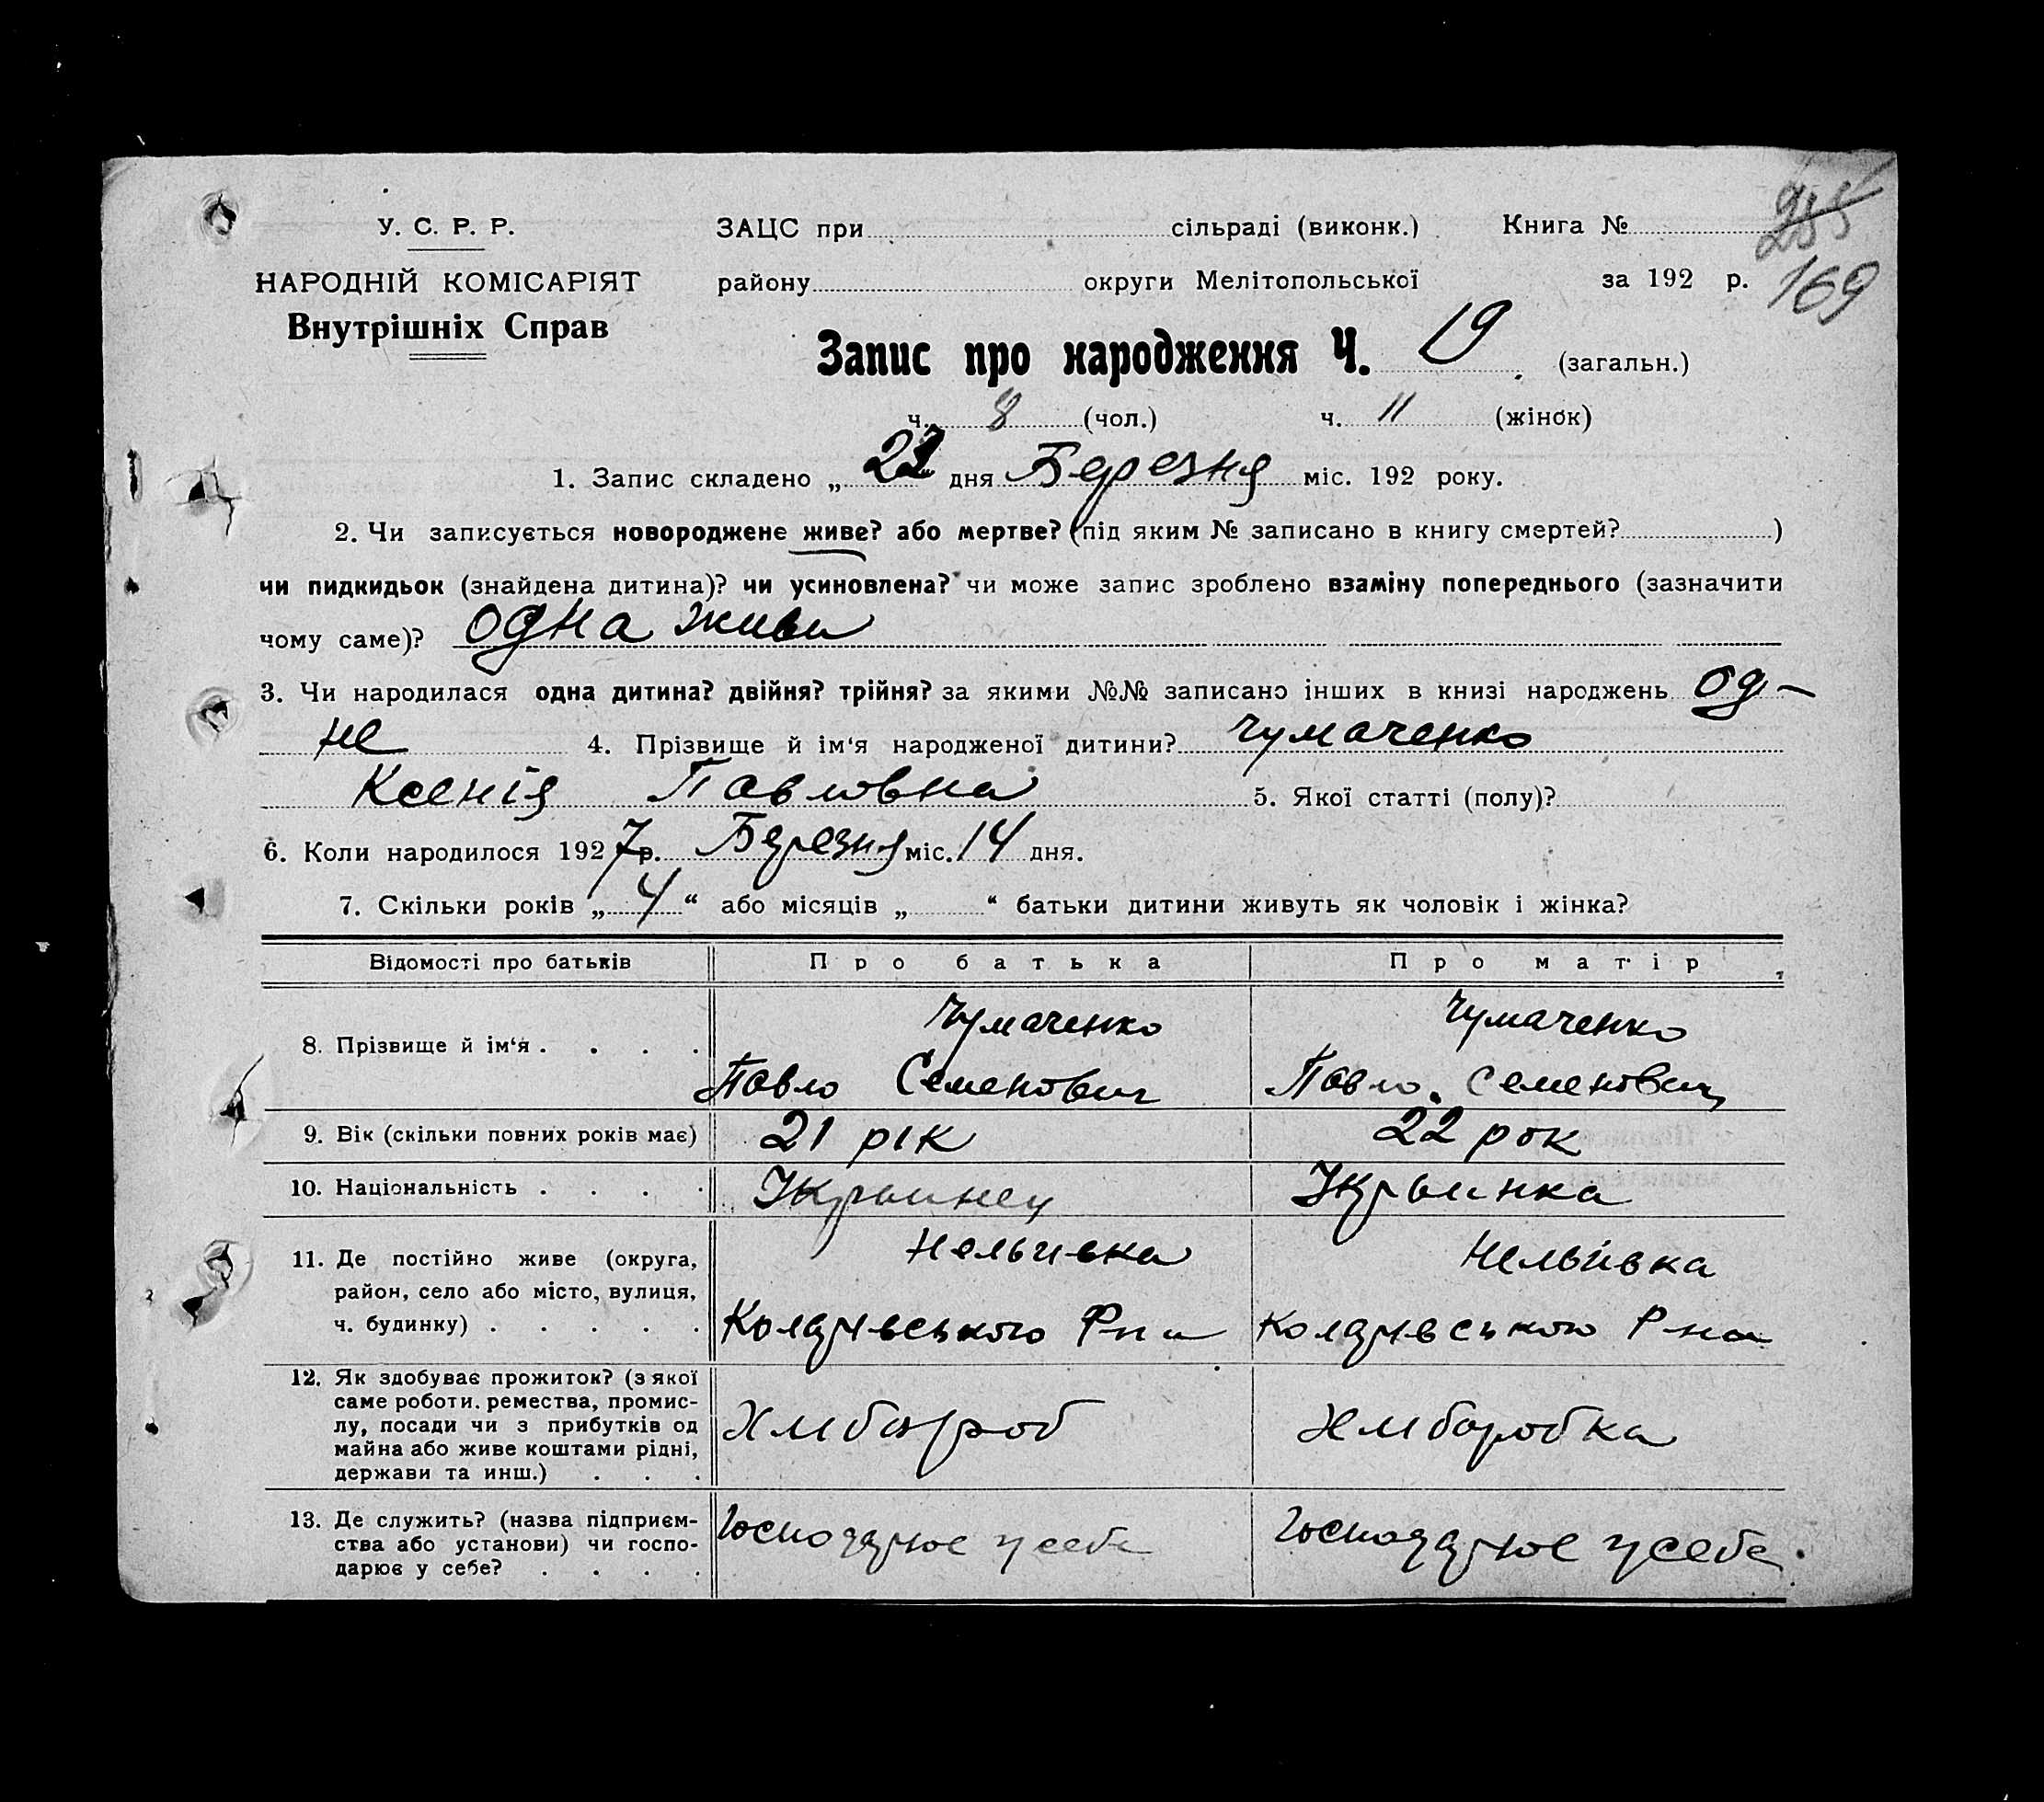 У. С. Р. Р.
НАРОДНІЙ КОМІСАРІЯТ
Внутрішніх Справ
ЗАЦС при сільраді (виконк.) Книга №
району округи Мелітопольської за 192 р.
169
Запис про народження Ч. 19 (загальн.)
ч. 8 (чол.) ч. 11 (жінок)
1. Запис складено „ дня Березня міс. 192 року.
2. Чи записується новороджене живе? або мертве? (під яким № записано в книгу смертей? )
чи пидкидьок (знайдена дитина)? чи усиновлена? чи може запис зроблено взаміну попереднього (зазначити
чому саме)? одна
3. Чи народилася одна дитина? двійня? трійня? за якими №№ записано інших в книзі народжень од-
не 4. Прізвище й ім'я народженої дитини? Чумаченко
Ксенія Павловна 5. Якої статті (полу)?
6. Коли народилося 1927 р. Березня міс. 14 дня.
7. Скільки років „ 4 “ або місяців „ “ батьки дитини живуть як чоловік і жінка?
Відомості про батьків Про батька Про матір
8. Прізвище й ім'я . . . . Чумаченко Чумаченко
Павло Семенович Павло Семенович
9. Вік (скільки повних років має) 21 рік 22 рок
10. Національність . . . .
11. Де постійно живе (округа,
район, село або місто, вулиця,
ч. будинку) . . . . .
12. Як здобуває прожиток? (з якої
саме роботи, ремества, промис-
лу, посади чи з прибутків од
майна або живе коштами рідні,
держави та инш.) . . .
13. Де служить? (назва підприєм-
ства або установи) чи госпо-
дарює у себе? . . . .
Господарює у себе Господарює у себе